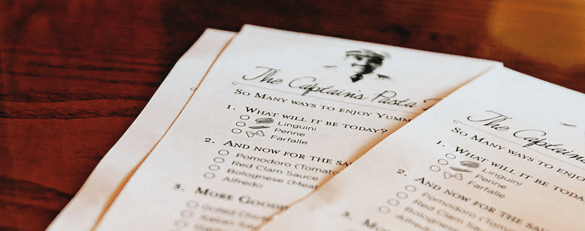 The Captain's Pasta
So Many ways to enjoy Yumm
1. What will it be today?
Linguini
Penne
Farfalle
2. And now for the sa
Pomodoro (Tomato
Red Clam Sauce
Bolognese (Meat
Alfredo
3. More Good
Grilled
Italian
The Captain
So Many ways to enjoy
1. What will it be toda
Linguini
Penne
Farfalle
2. And now for the
Pomodoro (Tom
Red Clam Sauce
Bolognese (M
Alfredo